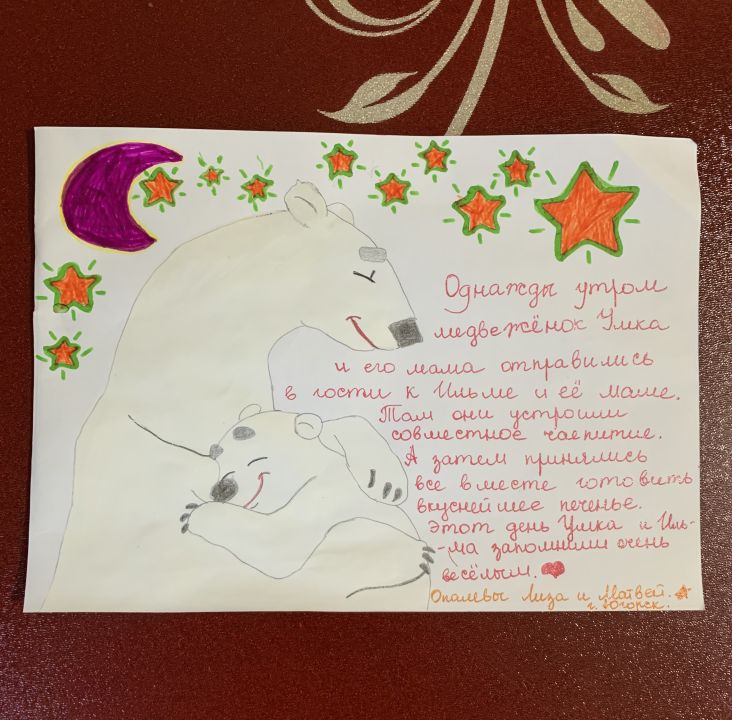 Однажды утром
медвежёнок Умка
и его мама отправились
в гости к Ильме и её маме.
Там они устроили
совместное чаепитие.
А затем принялись
все вместе готовить
вкуснейшее печенье.
Этот день Умка и Иль-
-ма запомнили очень
весёлым.
Опалевы Лиза и Матвей.
г. Югорск.